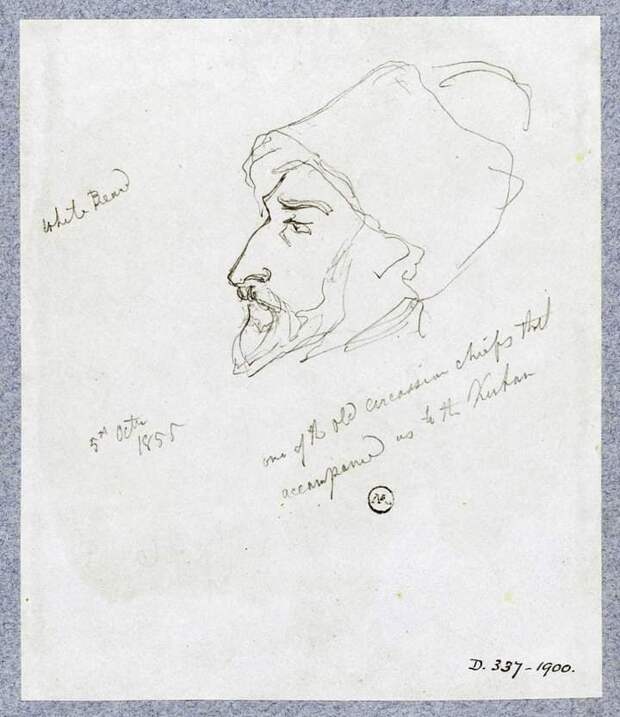 White Beard
5th Octr
1855
one of the old circassian chiefs that
accompanied us to the Kuban
D. 337-1900.